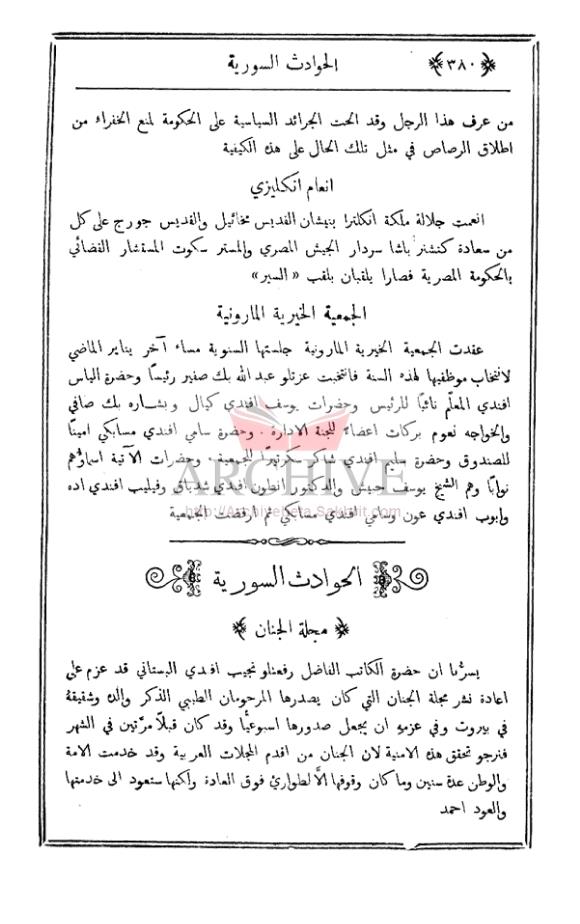 ﴿٣٨٠﴾ الحوادث السورية
من عرف هذا الرجل وقد الحت الجرائد السياسية على الحكومة لمنع الخفراء من
اطلاق الرصاص في مثل تلك الحال على هذه الكيفية
انعام انكليزي
انعمت جلالة ملكة انكلترا بنيشان القديس مخائيل والقديس جورج على كل
من سعادة كتشنر باشا سردار الجيش المصري والمستر سكوت المستشار القضائي
بالحكومة المصرية فصارا يلقبان بلقب «السير»
الجمعية الخيرية المارونية
عقدت الجمعية الخيرية المارونية جلستها السنوية مساء آخر يناير الماضي
لانتخاب موظفيها لهذه السنة فانتخبت عزتلو عبد الله بك صفير رئيسًا وحضرة الياس
افندي المعلّم نائبًا للرئيس وحضرات يوسف افندي كيال وبشاره بك صافي
والخواجه نعوم بركات اعضاء للجنة الادارة. وحضرة سامي افندي مسابكي امينًا
للصندوق وحضرة سليم افندي شاكر سكرتيرًا للجمعية. وحضرات الآتية اسماؤهم
نوابًا وهم الشيخ يوسف حبيش والدكتور انطون افندي شدياق وفيليب افندي اده
وايوب افندي عون وسامي افندي مسابكي ثم ارفضت الجمعية
ARCHIVE
http://Archivebeta.Sakhrit.com
الحوادث السورية
﴿ مجلة الجنان ﴾
يسرُّنا ان حضرة الكاتب الفاضل رفعتلو نجيب افندي البستاني قد عزم على
اعادة نشر مجلة الجنان التي كان يصدرها المرحومان الطيبي الذكر والده وشقيقهُ
في بيروت وفي عزمهِ ان يجعل صدورها اسبوعيًا وقد كان قبلًا مرّتين في الشهر
فنرجو تحقق هذه الامنية لان الجنان من اقدم المجلات العربية وقد خدمت الامة
والوطن عدة سنين وما كان وقوفها الَّا لطوارئ فوق العادة ولكنها ستعود الى خدمتها
والعود احمد